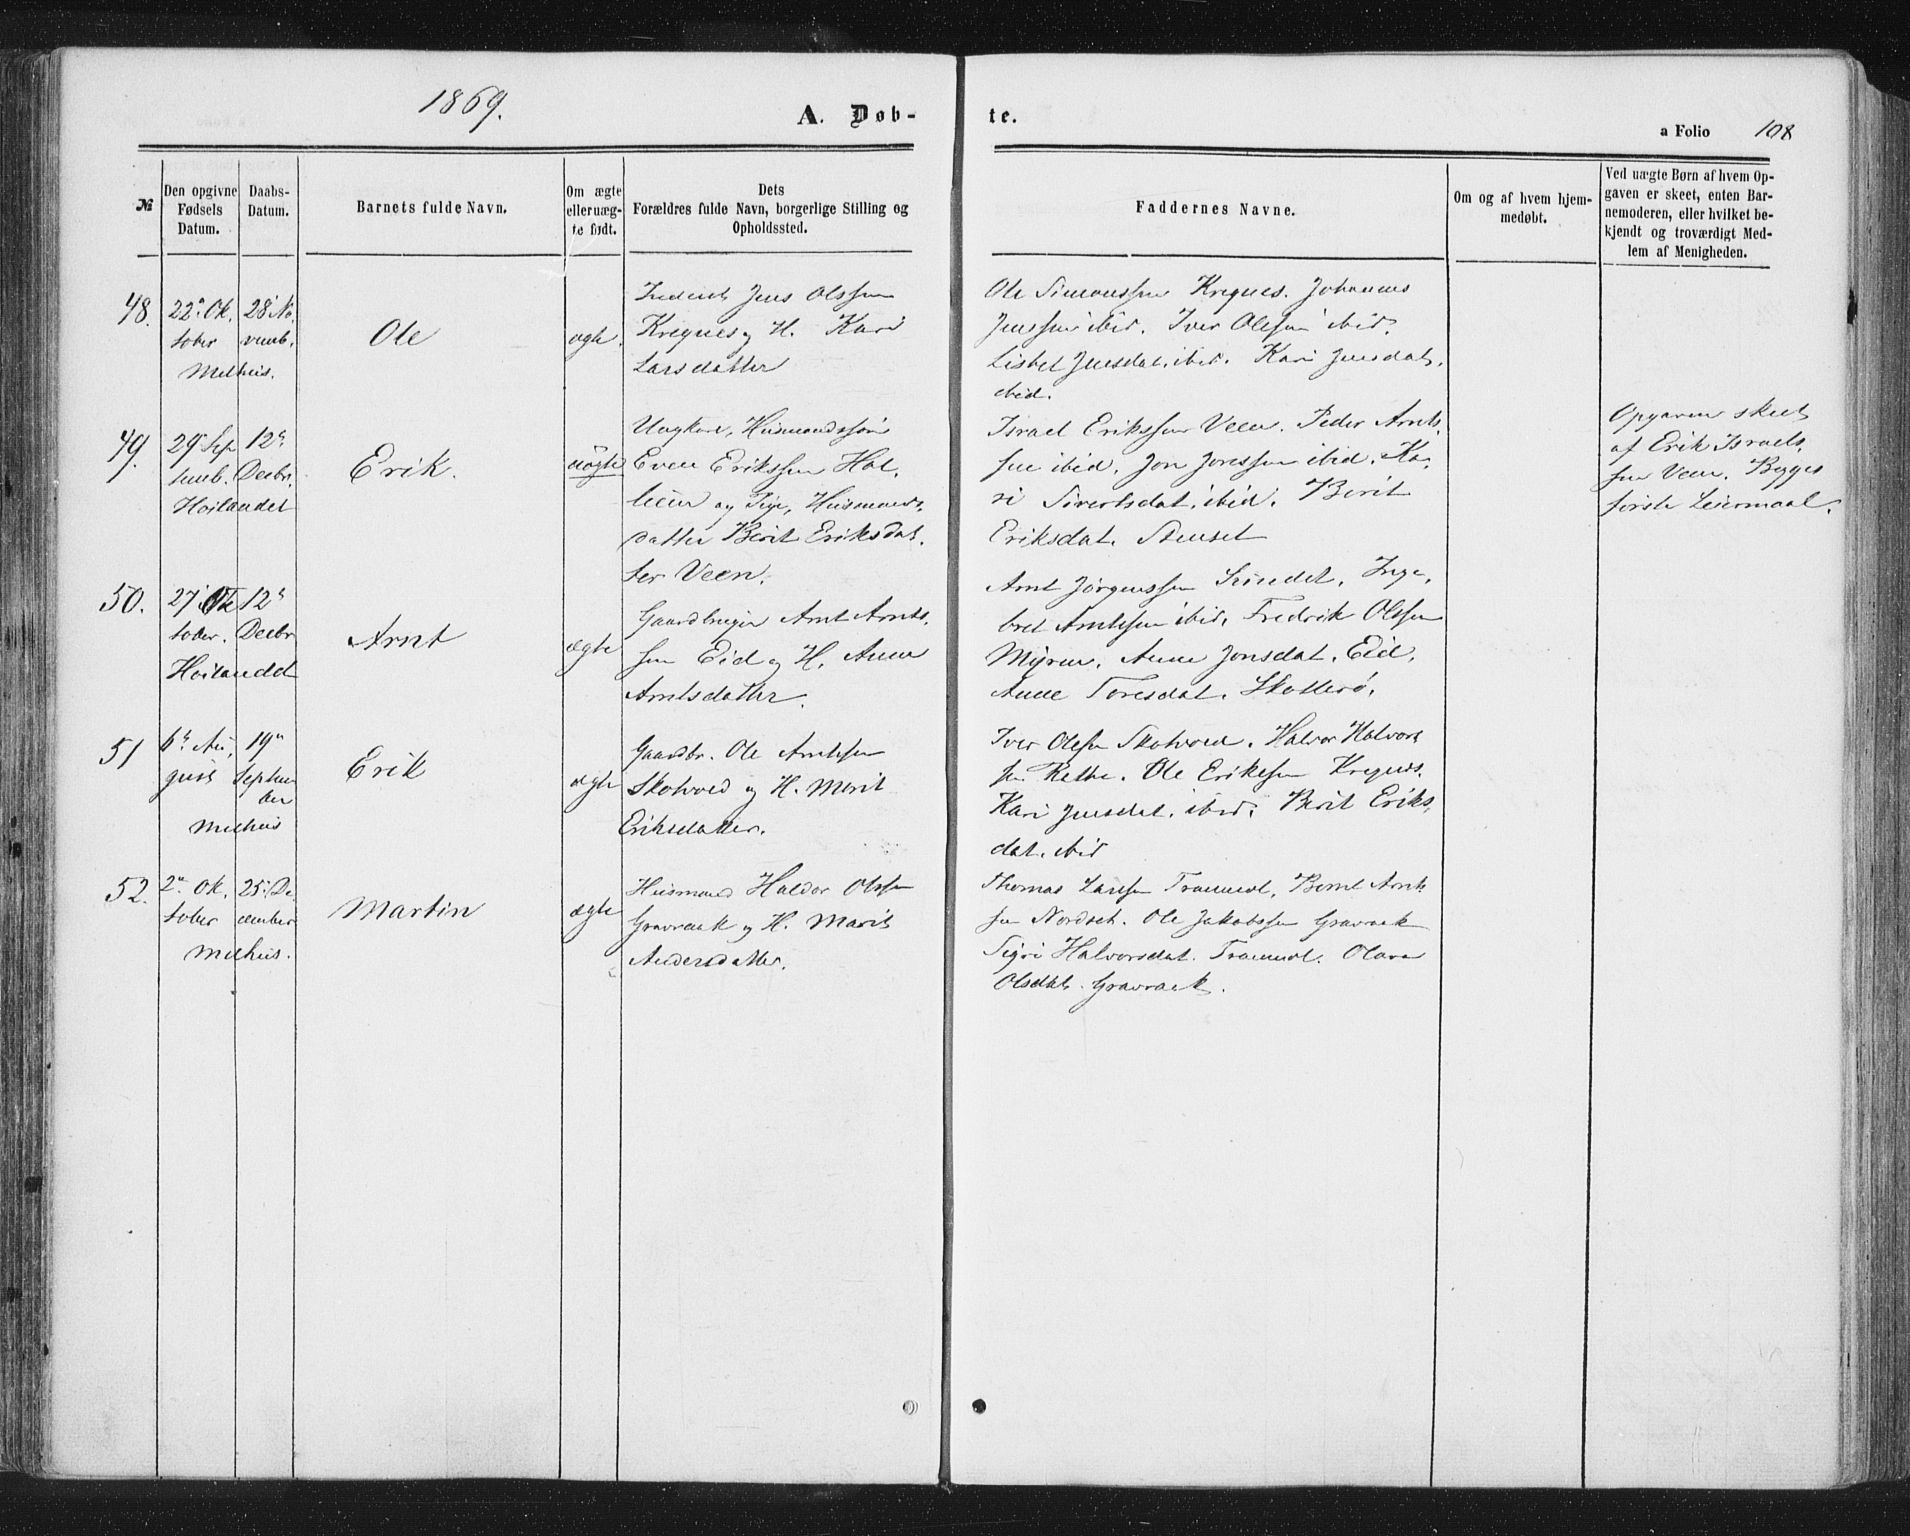 1869.
A. Døb-
te.
a Folio 108
№
Den opgivne
Fødsels
Datum.
Daabs-
Datum.
Barnets fulde Navn.
Om ægte
eller uæg-
te født.
Dets
Forældres fulde Navn, borgerlige Stilling og
Opholdssted.
Faddernes Navne.
Om og af hvem hjem-
medøbt.
Ved uægte Børn af hvem Op-
gaven er skeet, enten Bar-
nemoderen, eller hvilket be-
kjendt og troværdigt Med-
lem af Menigheden.
48.
22. Ok.
tober
28 No.
vemb.
Melhus.
Ole
ægte.
Jens Olssen
Kregnes og H. Kari
Larsdatter
Ole Simonssen Kregnes. Johannes
Jenssen ibid. Iver Olssen ibid.
Lisbet Jensdat. ibid. Kari Jensdat.
ibid.
49.
29 Sep
temb.
12
Decbr.
Hoilandet
Erik.
uægte
Ungkarl, Husmandssøn
Even Erikssen Hol,
og Pige, Husmands,
datter Berit Eriksdat,
ter Veen.
Israel Erikssen Veen. Peder Arnt,
sen ibid. Jon Jonssen ibid. Ka,
ri Sivertsdat. ibid. Berit
Eriksdat. Stenset
Opgaven skeet
af Erik Israels,
sen Veen. Begges
første Leiermaal.
50.
27 Ok
tober.
12
Decbr
Hoilandet
Arnt
ægte
Gaardbruger Arnt Arnts,
sen Eid og H. Anne
Arntsdatter.
Arnt Jørgenssen Inge,
bret Arntssen ibid. Fredrik Olssen
Myren. Anne Jonsdat. Eid.
Anne Toresdat. Skotterø.
51
6 Au,
gust
19
Septem
ber
Melhus
Erik
ægte
Gaardbr. Ole Arntssen
Skotvold og H. Merit
Eriksdatter.
Iver Olssen Skotvold. Halvor Halvors
sen Rette. Ole Erikssen Kregnes.
Kari Jensdat. ibid. Berit Eriks,
dat. ibid
52.
2 Ok.
tober
25 De
cember
Melhus.
Martin
ægte
Husmand Haldor Olssen
Gravraak og H. Marit
Andersdatter.
Thomas Larssen Bernt Arnt
sen Nordset. Ole Jakobssen Gravraak
Sigri Halvorsdat. Olava
Olsdat. Gravraak.